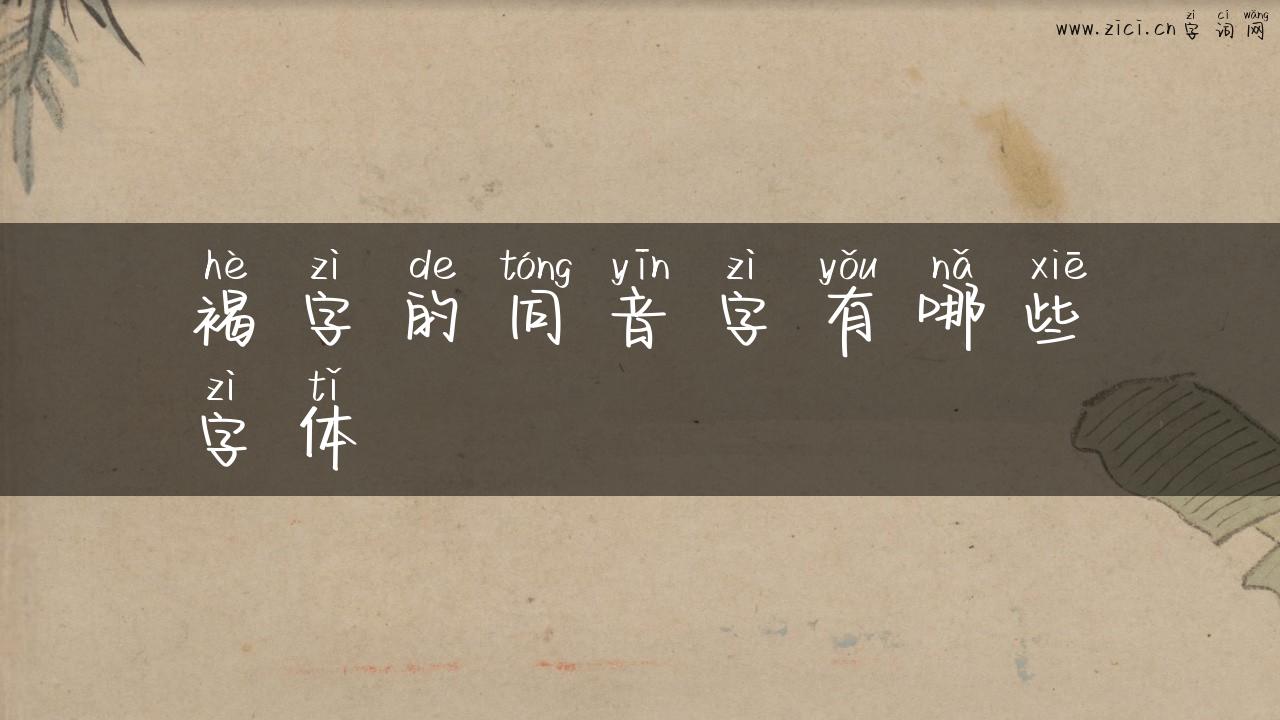 zì cí wǎng
www.zici.cn 字词网
hè zì de tóng yīn zì yǒu nǎ xiē
褐字的同音字有哪些
zì tǐ
字体